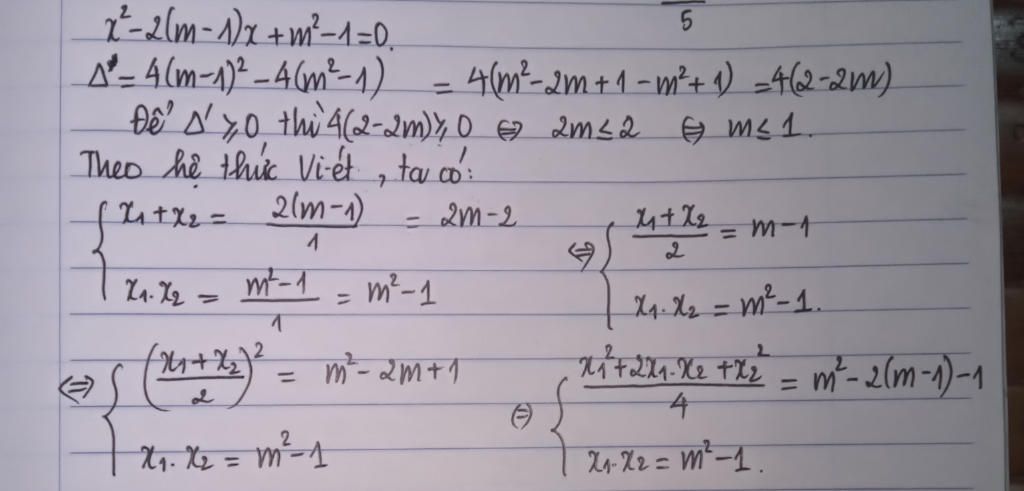 5
x² - 2(m-1)x + m² - 1 = 0.
Δ' = 4(m-1)² - 4(m²-1) = 4(m² - 2m + 1 - m² + 1) = 4(2-2m)
Để Δ' ⩾ 0 thì 4(2-2m) ⩾ 0 ⇔ 2m ≤ 2 ⇔ m ≤ 1.
Theo hệ thức Vi-ét, ta có:
{ x₁ + x₂ = 2(m-1)/1 = 2m - 2 ⇔ { (x₁ + x₂)/2 = m - 1
x₁. x₂ = (m² - 1)/1 = m² - 1 x₁. x₂ = m² - 1.
⇔ { ((x₁ + x₂)/2)² = m² - 2m + 1 ⇔ { (x₁² + 2x₁. x₂ + x₂²)/4 = m² - 2(m-1) - 1
x₁. x₂ = m² - 1 x₁. x₂ = m² - 1.